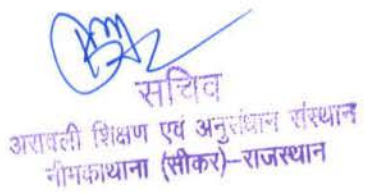 सचिव
अरावली शिक्षण एवं अनुसंधान संस्थान
नीमकाथाना (सीकर)–राजस्थान